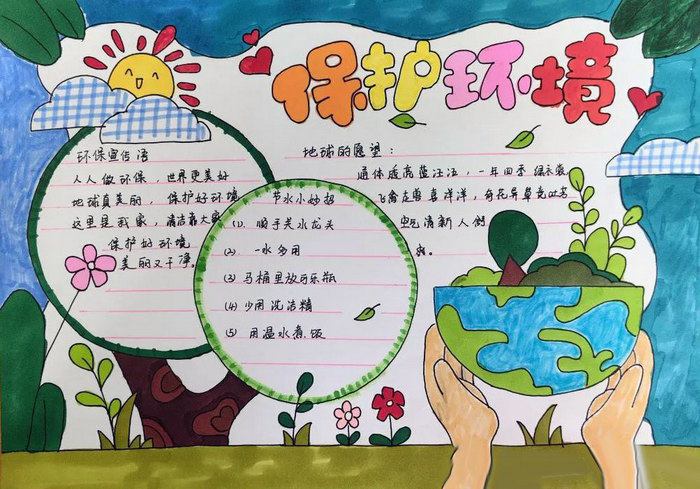 保护环境
环保宣传语
人人做环保，世界更美好
地球真美丽，保护好环境
这里是我家，清洁靠大家
保护好环境
美丽又干净。
节水小妙招
(1). 顺手关水龙头
(2). 一水多用
(3) 马桶里放可乐瓶
(4) 少用洗洁精
(5) 用温水煮饭
地球的愿望：
通体透亮蓝汪汪，一年四季绿衣裳
飞禽走兽喜洋洋，奇花异草竞吐芳
空气清新人俩